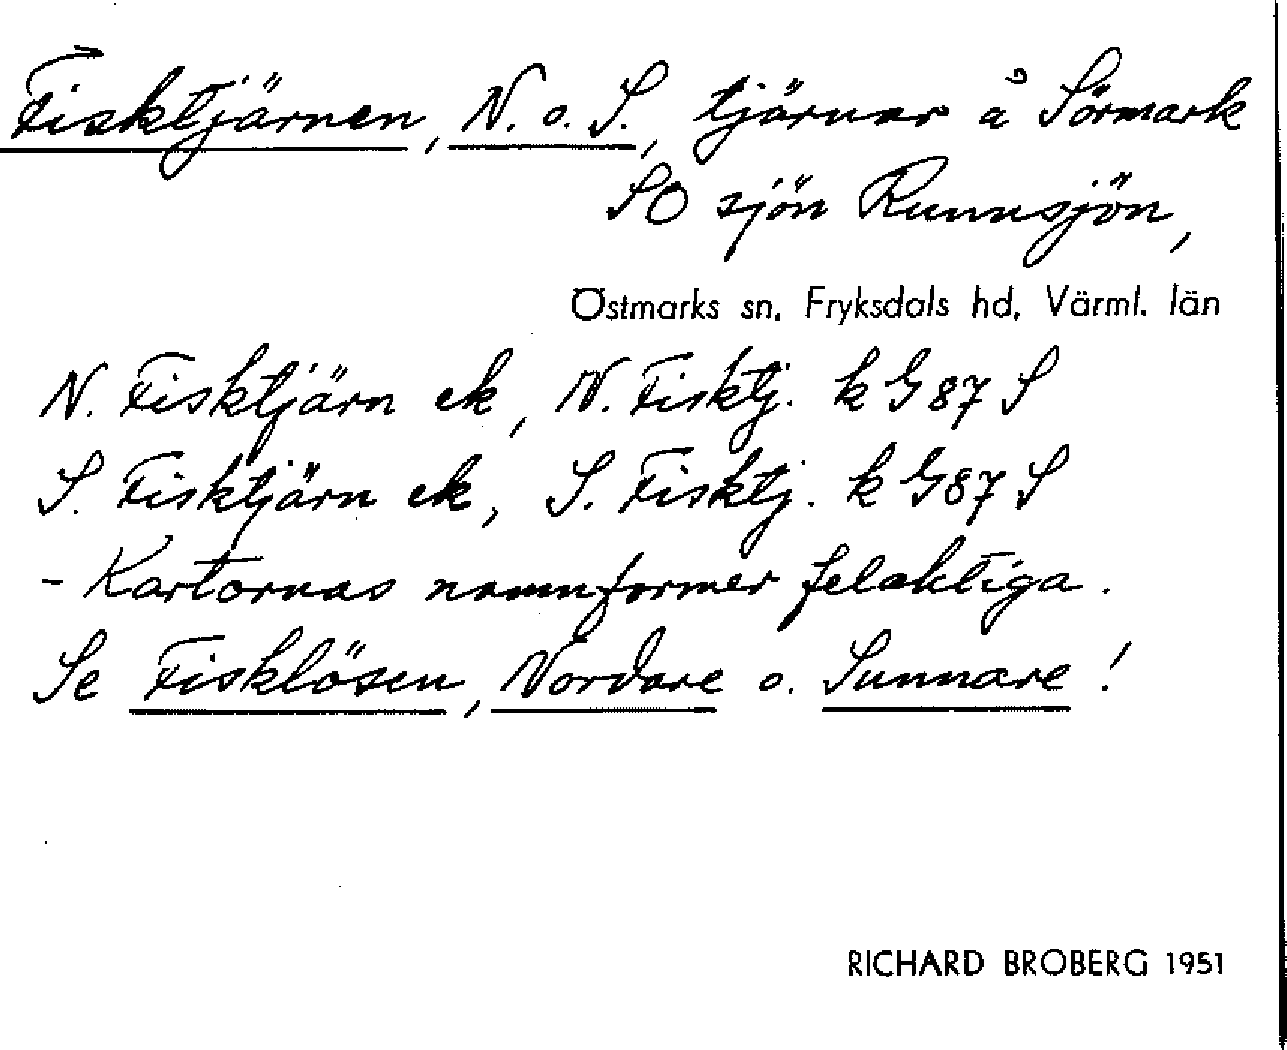 Fisktjärnen, N. o. S., tjärnar å Sörmark
SO sjön Runnsjön,
Östmarks sn, Fryksdals hd, Värml. län
N. Fisktjärn ek, N. Fisktj. k G 87 S
S. Fisktjärn ek, S. Fisktj. k G 87 S
- Kartornas namnformer felaktiga.
Se Fisklösen, Nordare o. Sunnare!
RICHARD BROBERG 1951